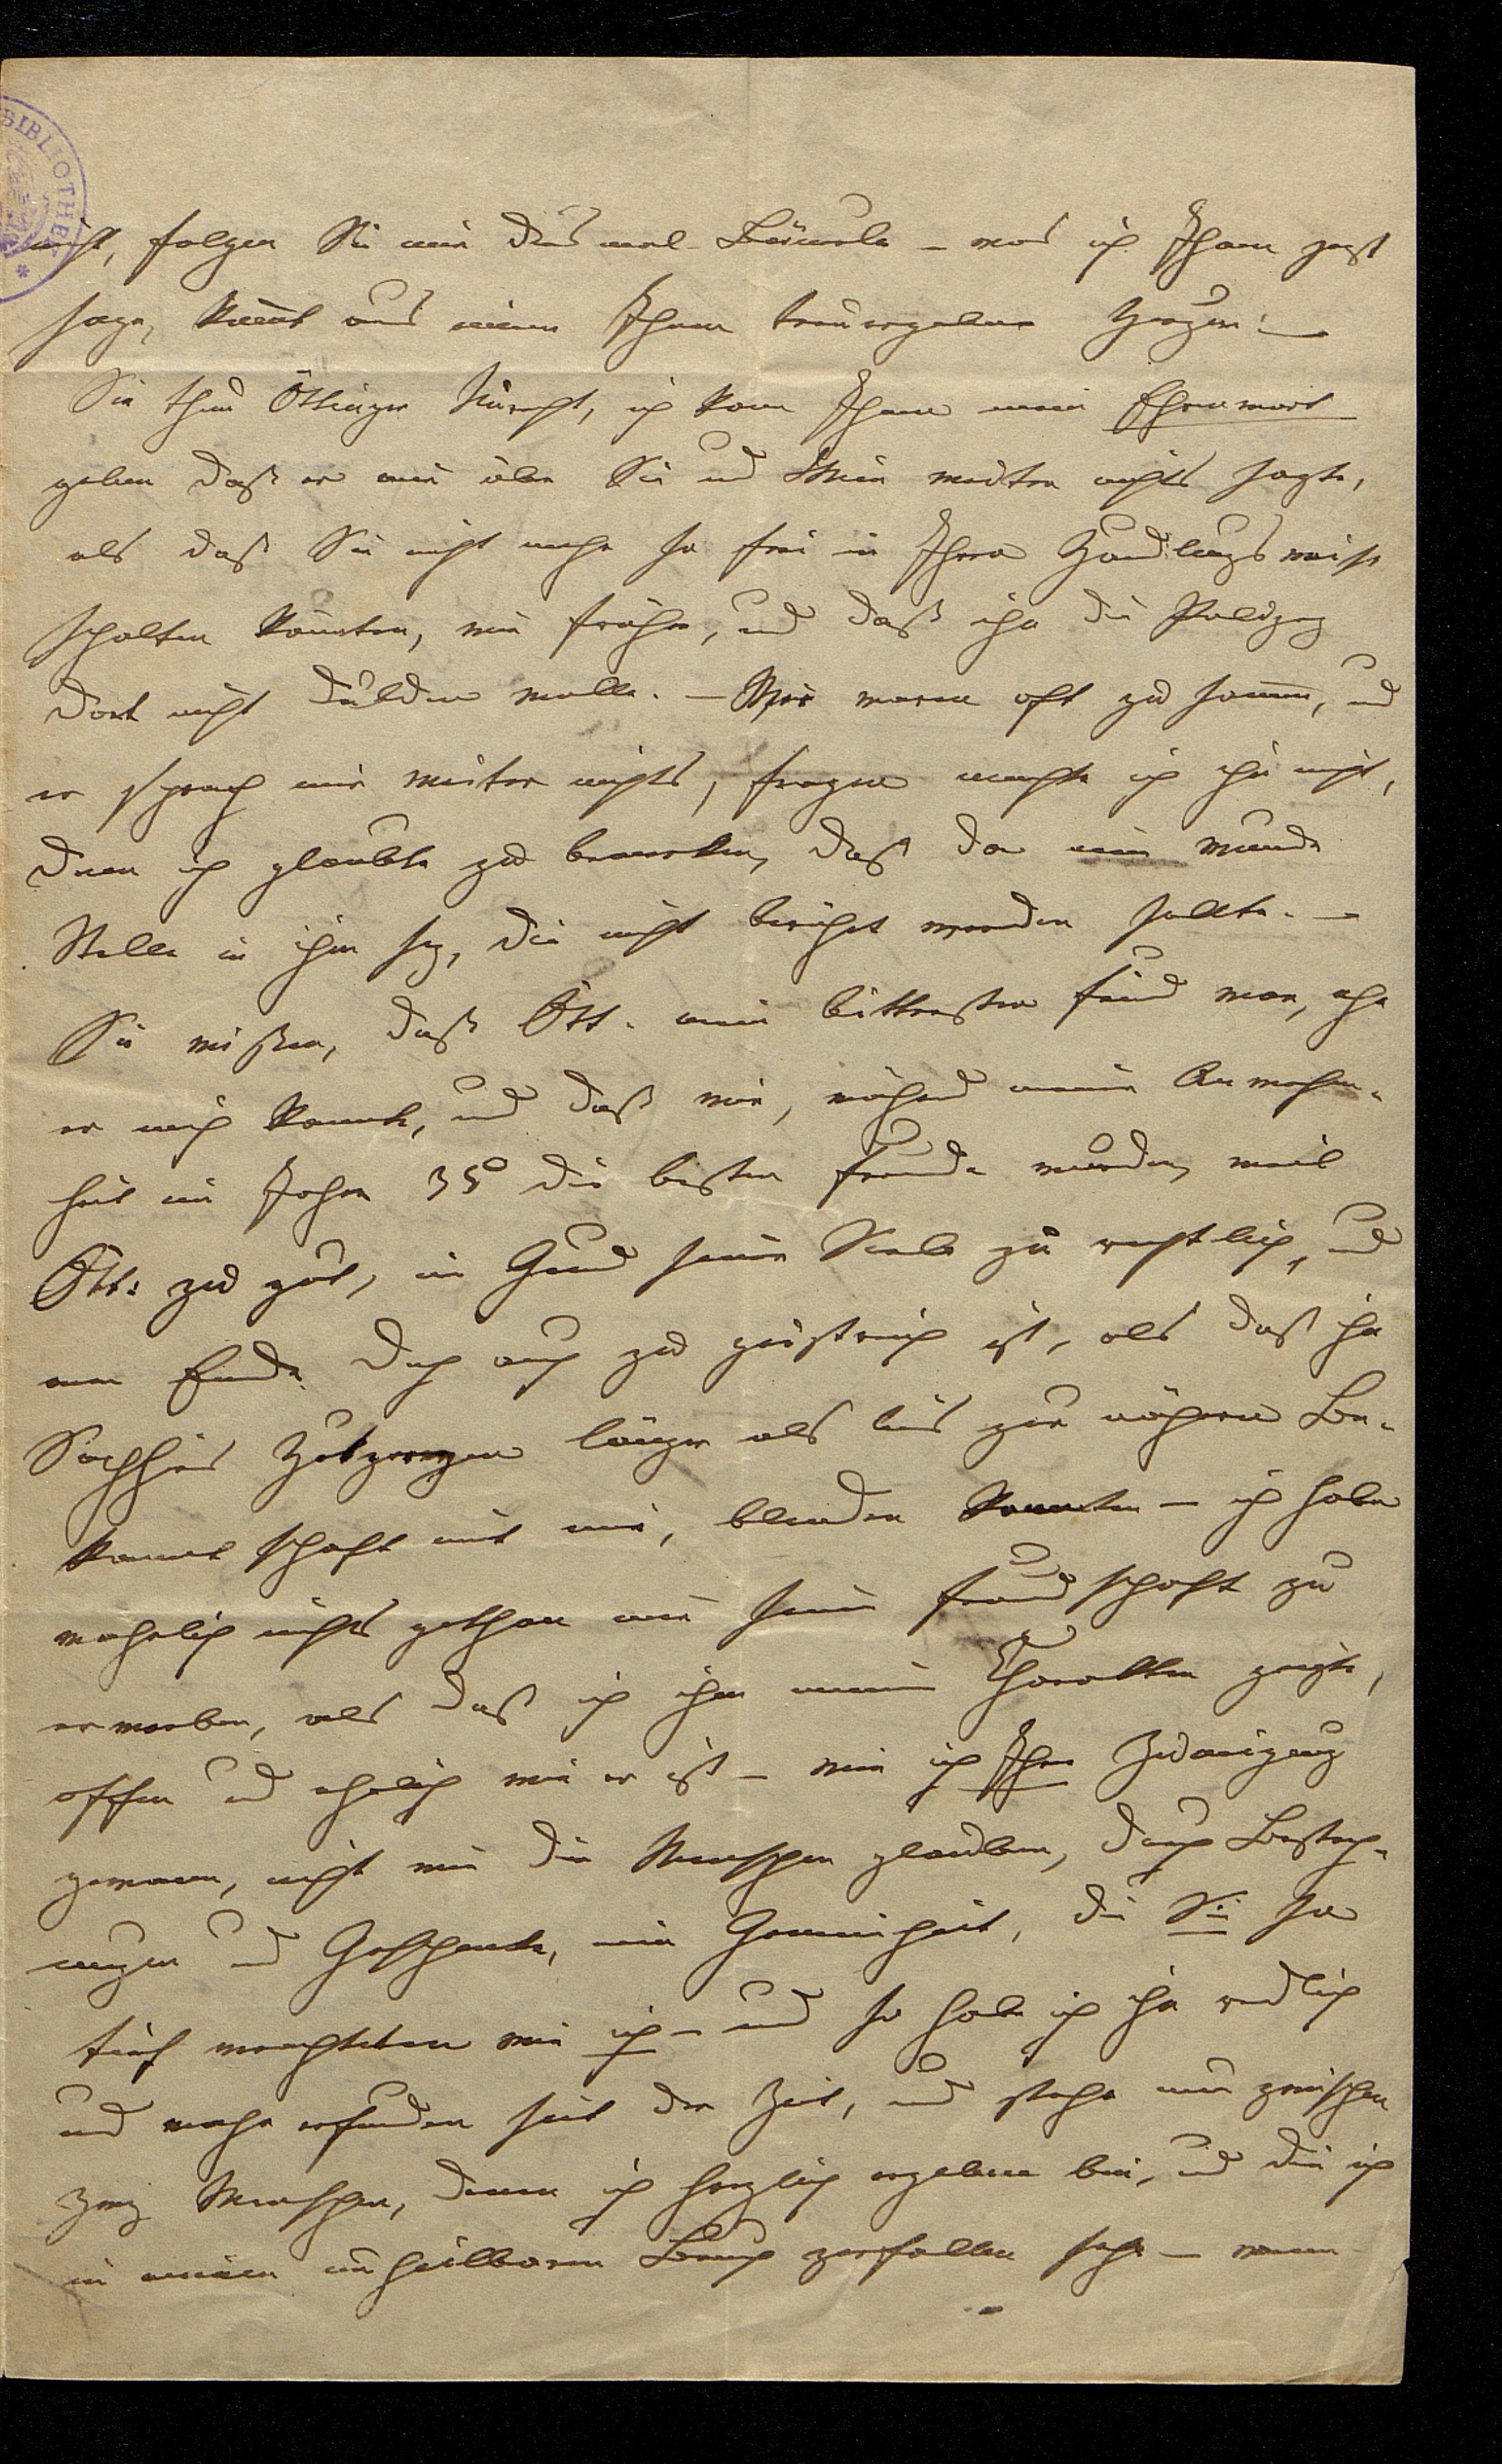 BIBLIOTHEK
nicht, folgen Sie mir das mal Bäuerle – was ich Ihnen jezt
sage, kömt aus einem Ihnen treu ergebenen Herzen: –
Sie thun Öttinger Unrecht, ich kann Ihnen mein Ehrenwort
geben daß er mir über Sie und Wien weiter nichts sagte,
als daß Sie nicht mehr so frei in Ihrer Handlungsweise
schalten könnten, wie früher, und daß ihn die Polizey
dort nicht dulden wolle. – Wir waren oft zusamen, und
er sprach mir weiter nichts, fragen mochte ich ihn nicht,
denn ich glaubte zu bemerken, daß da eine wunde
Stelle in ihm sey, die nicht berührt werden sollte. –
Sie wißen, daß Ött. mein bitterster Feind war, ehe
er mich kannte, und daß wir, während meiner Anwesen-
heit im Jahre 35 die besten Freunde wurden, weil
Ött: zu gut, im Grund seiner Seele zu rechtlich, und
am Ende doch auch zu geistreich ist, als daß ihn
Saphirs Hetzereyen länger als bis zur nähern Be-
kanntschaft mit mir, blenden konnten – ich habe
wahrlich nichts gethan mir seine Freundschaft zu
erwerben, als daß ich ihm meinen Charakter zeigte,
offen und ehrlich wie er ist – wie ich Ihre Zuneigung
gewann, nicht wie die Menschen glauben, durch Bestech-
ungen und Geschenke, eine Gemeinheit, die Sie so
tief verachteten wie ich – und so habe ich ihn redlich
und wahr erfunden seit der Zeit, und stehe nun zwischen
zwey Menschen, denen ich herzlich ergeben bin, und die ich
in einen unheilbaren Bruch zerfallen sehe – wenn